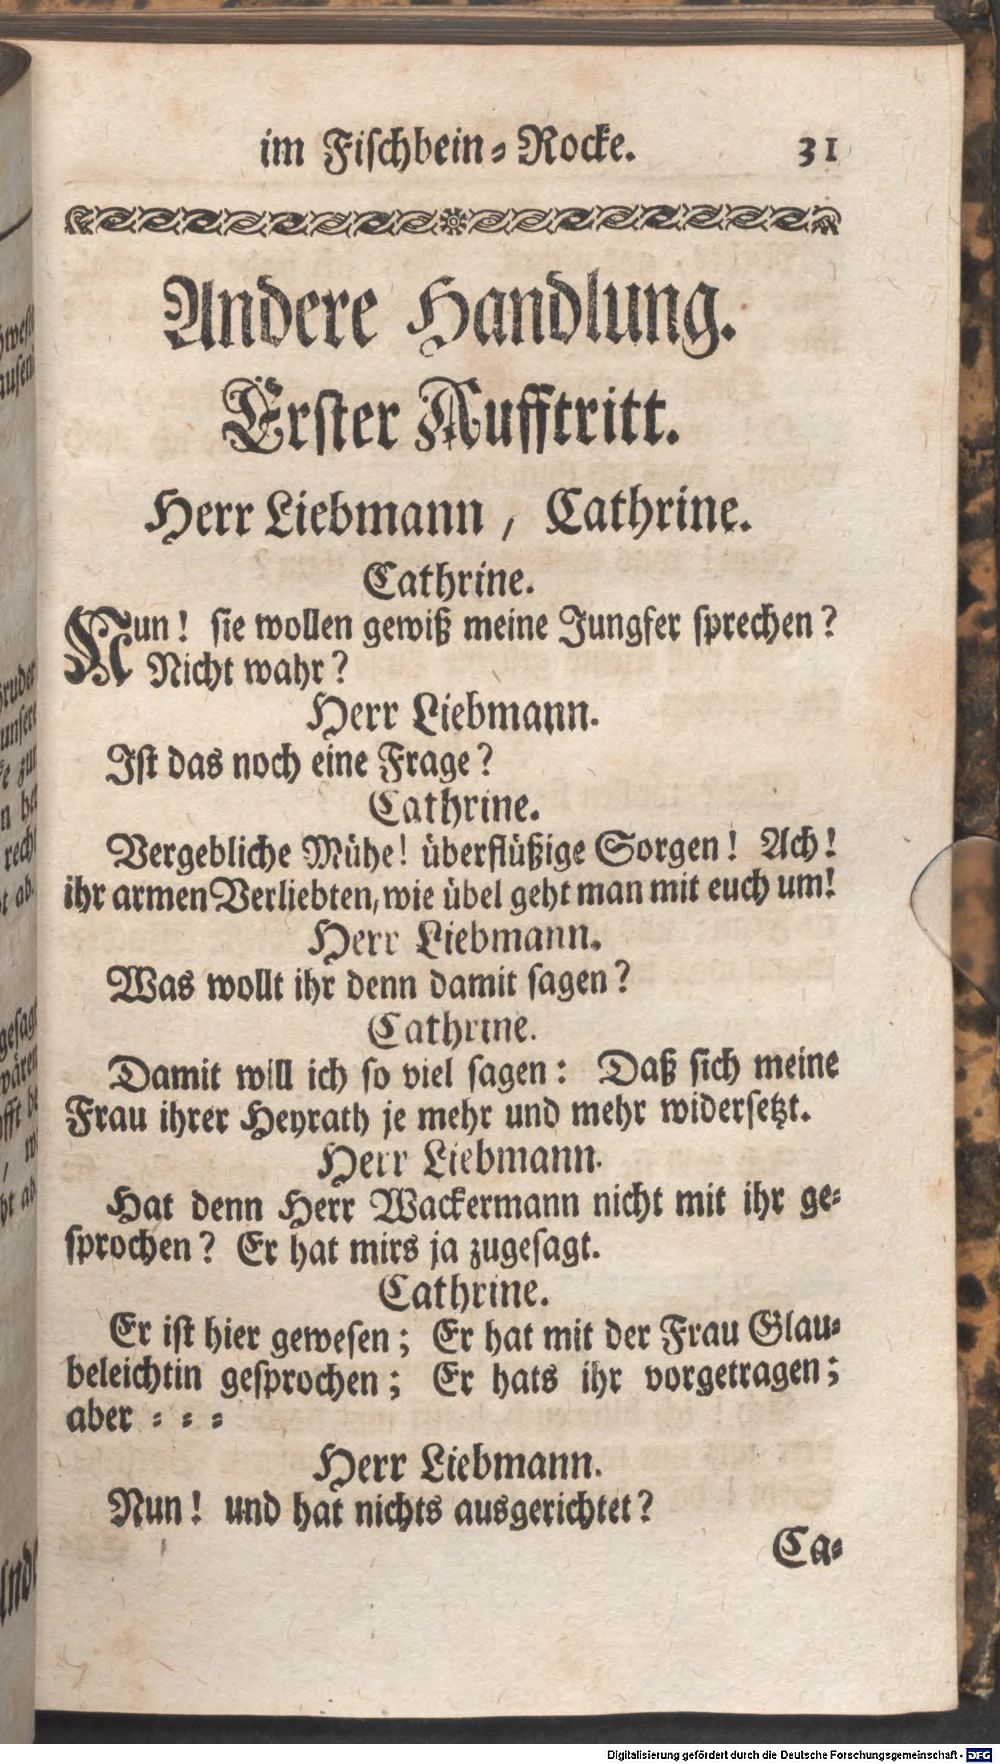 im Fischbein-Rocke. 31
Andere Handlung.
Erster Aufftritt.
Herr Liebmann, Cathrine.
Cathrine.
Nun! sie wollen gewiß meine Jungfer sprechen?
Nicht wahr?
Herr Liebmann.
Ist das noch eine Frage?
Cathrine.
Vergebliche Mühe! überflüßige Sorgen! Ach!
ihr armen Verliebten, wie übel geht man mit euch um!
Herr Liebmann.
Was wollt ihr denn damit sagen?
Cathrine.
Damit will ich so viel sagen: Daß sich meine
Frau ihrer Heyrath je mehr und mehr widersetzt.
Herr Liebmann.
Hat denn Herr Wackermann nicht mit ihr ge-
sprochen? Er hat mirs ja zugesagt.
Cathrine.
Er ist hier gewesen; Er hat mit der Frau Glau-
beleichtin gesprochen; Er hats ihr vorgetragen;
aber - - -
Herr Liebmann.
Nun! und hat nichts ausgerichtet?
Ca-
Digitalisierung gefördert durch die Deutsche Forschungsgemeinschaft - DFG